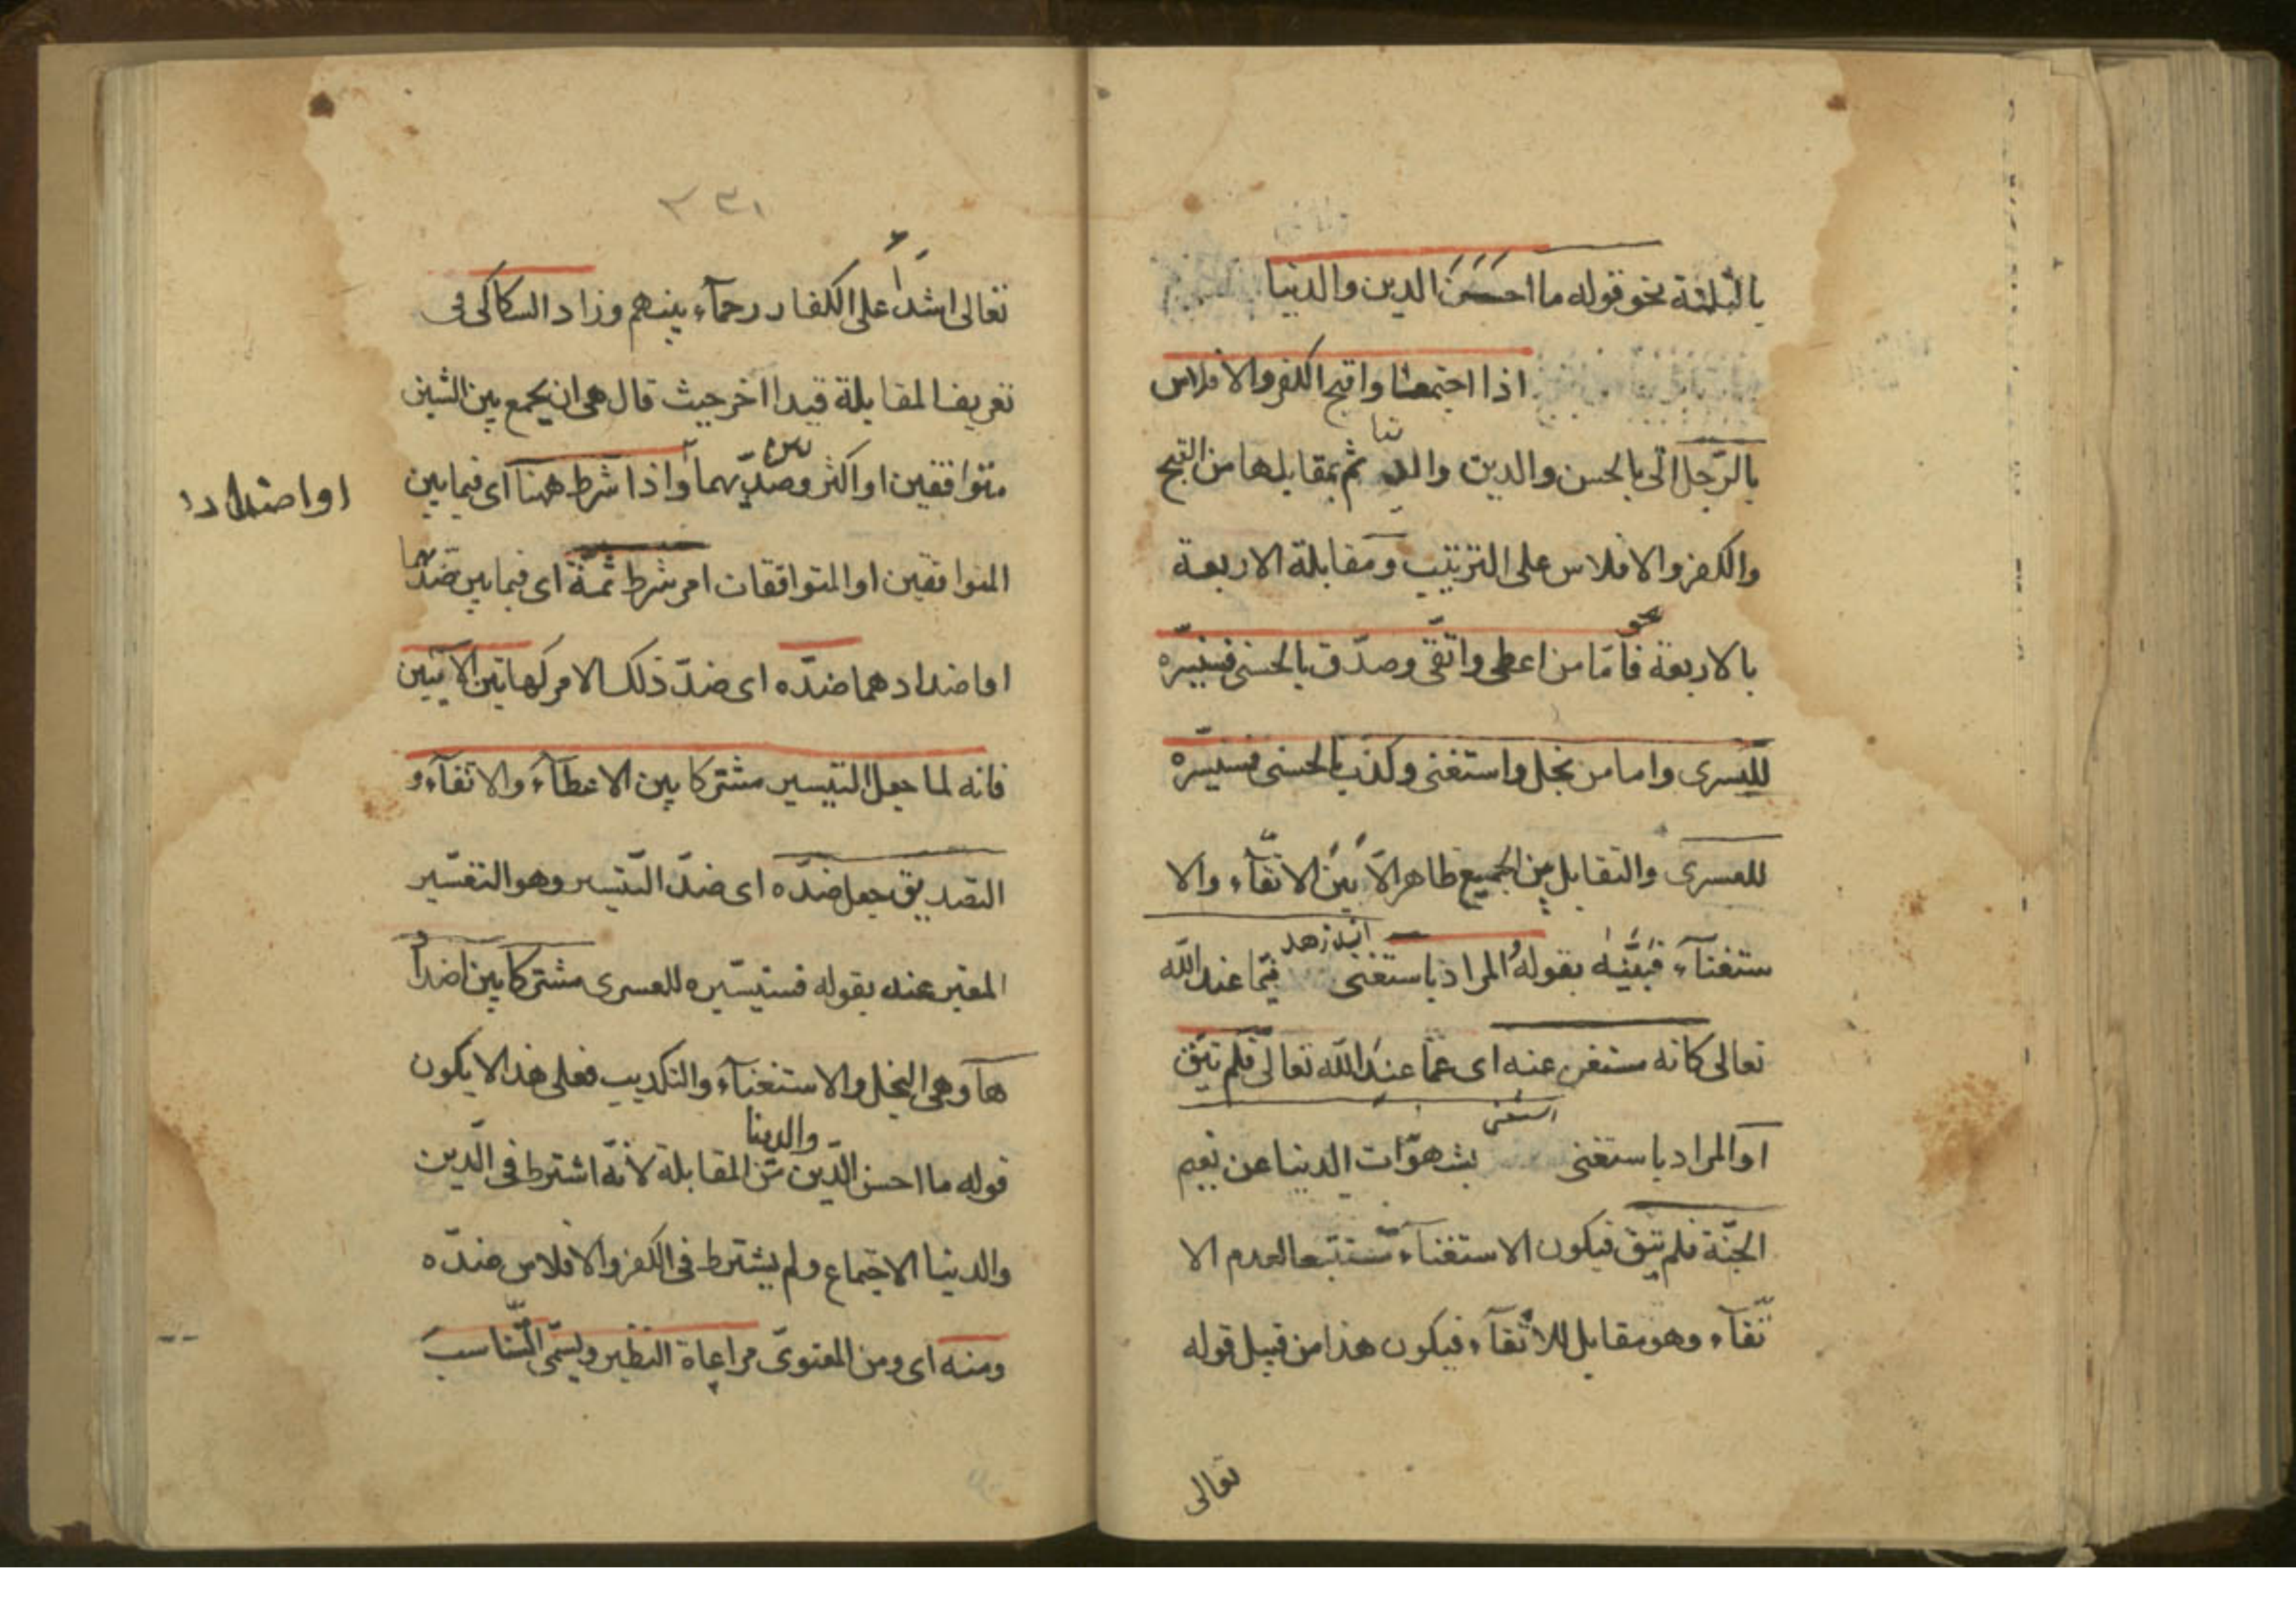 بالثلثة نحو قوله ما احسن الدين والدنيا
اذا اجتمعنا واقبح الكفر والافلاس
بالرّجل اتى بالحسن والدين والد نيا ثم بمقابلها من القبح
والكفر والافلاس على الترتيب ومقابلة الاربعة
نحو
بالاربعة فامّا من اعطى واتّقى وصدّق بالحسنى فسنيسّره
لليسرى واما من بخل واستغنى وكذّب بالحسنى فسنيسّره
للعسرى والتقابل بين الجميع ظاهر الّا بَيْن الاتّقآء والا
ستغنآء فبيّنه بقوله المراد باستغنى انه زهد فيما عند الله
تعالى كانه مستغن عنه اى عمّا عند الله تعالى فلم يتّق
استغنى
او المراد باستغنى بشهوات الدنيا عن نعيم
الجنّة فلم يتّق فيكون الاستغنآء مستتبعا لعدم الا
تّقآء وهو مقابل للاتّقآء فيكون هذا من قبيل قوله
تعالى
٢٣١
تعالى اشدآء على الكفار رحمآء بينهم وزاد السكاكى فى
تعريف المقابلة قيدا اخر حيث قال هى ان يجمع بين الشيئين
متوافقين او اكثر وضدّيهما واذا شرط ههنا اى فيما بين
او اضدادا
المتوافقين او المتوافقات امر شرط ثمّة اى فيما بين ضدّيهما
او اضدادهما ضدّه اى ضدّ ذلك الامر كهاتين الايتين
فانه لما جعل التيسير مشتركا بين الاعطآء والاتقآء و
التصديق جعل ضدّه اى ضدّ التّيسير وهو التعسّير
المعبر عنه بقوله فسنيسّره للعسرى مشتركا بين اضداد
هآ وهى البخل والاستغنآء والتكذيب فعلى هذا لا يكون
والدينا
قوله ما احسن الدّين من المقابلة لانّه اشترط فى الّدين
والدينا الاجتماع ولم يشترط فى الكفر والافلاس ضدّه
ومنه اى ومن المعنوىّ مراعاة النظير ويسمّى التّناسب